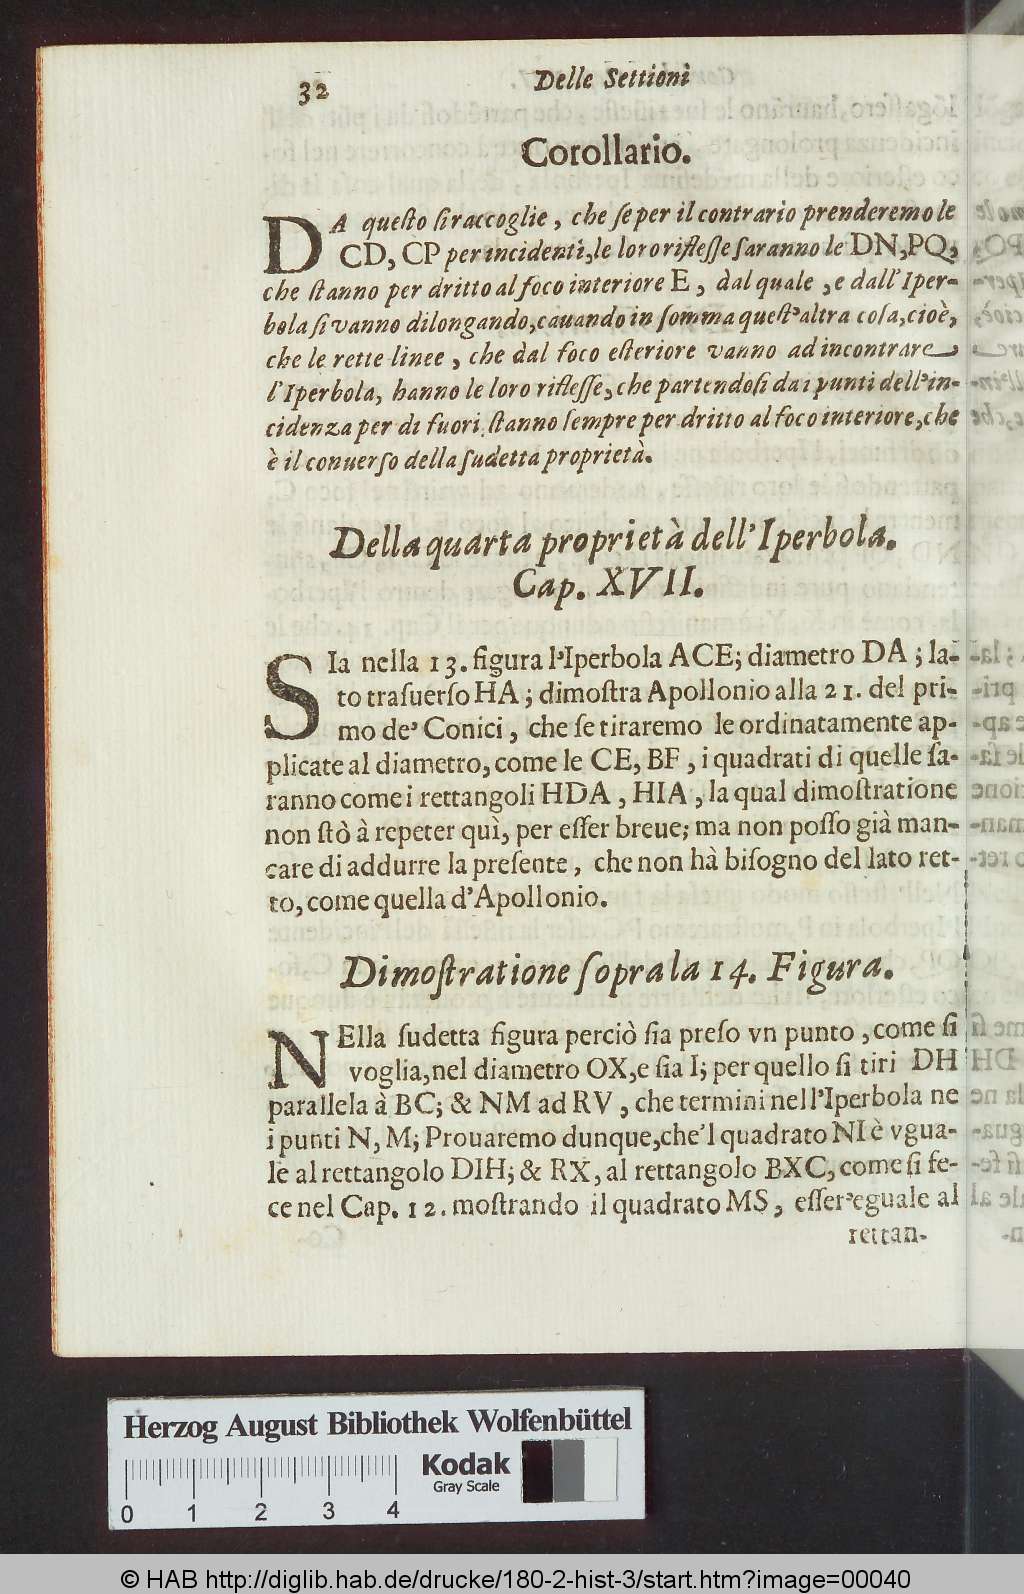 32 Delle Settioni
Corollario.
DA questo si raccoglie, che se per il contrario prenderemo le
CD, CP per incidenti, le loro riflesse saranno le DN, PQ,
che stanno per dritto al foco interiore E, dal quale, e dall'Iper-
bola si vanno dilongando, cauando in somma quest'altra cosa, cioè,
che le rette linee, che dal foco esteriore vanno ad incontrare,
l'Iperbola, hanno le loro riflesse, che partendosi da i punti dell'in-
cidenza per di fuori, stanno sempre per dritto al foco interiore, che
è il conuerso della sudetta proprietà.
Della quarta proprietà dell'Iperbola.
Cap. XVII.
SIa nella 13. figura l'Iperbola ACE; diametro DA; la-
to trasuerso HA; dimostra Apollonio alla 21. del pri-
mo de' Conici, che se tiraremo le ordinatamente ap-
plicate al diametro, come le CE, BF, i quadrati di quelle sa-
ranno come i rettangoli HDA, HIA, la qual dimostratione
non stò à repeter quì, per esser breue; ma non posso già man-
care di addurre la presente, che non hà bisogno del lato ret-
to, come quella d'Apollonio.
Dimostratione sopra la 14. Figura.
NElla sudetta figura perciò sia preso vn punto, come si
voglia, nel diametro OX, e sia I; per quello si tiri DH
parallela à BC; & NM ad RV, che termini nell'Iperbola ne
i punti N, M; Prouaremo dunque, che'l quadrato NI è vgua-
le al rettangolo DIH; & RX, al rettangolo BXC, come si fe-
ce nel Cap. 12. mostrando il quadrato MS, esser'eguale al
rettan-
Herzog August Bibliothek Wolfenbüttel
Kodak
Gray Scale
0 1 2 3 4
© HAB http://diglib.hab.de/drucke/180-2-hist-3/start.htm?image=00040